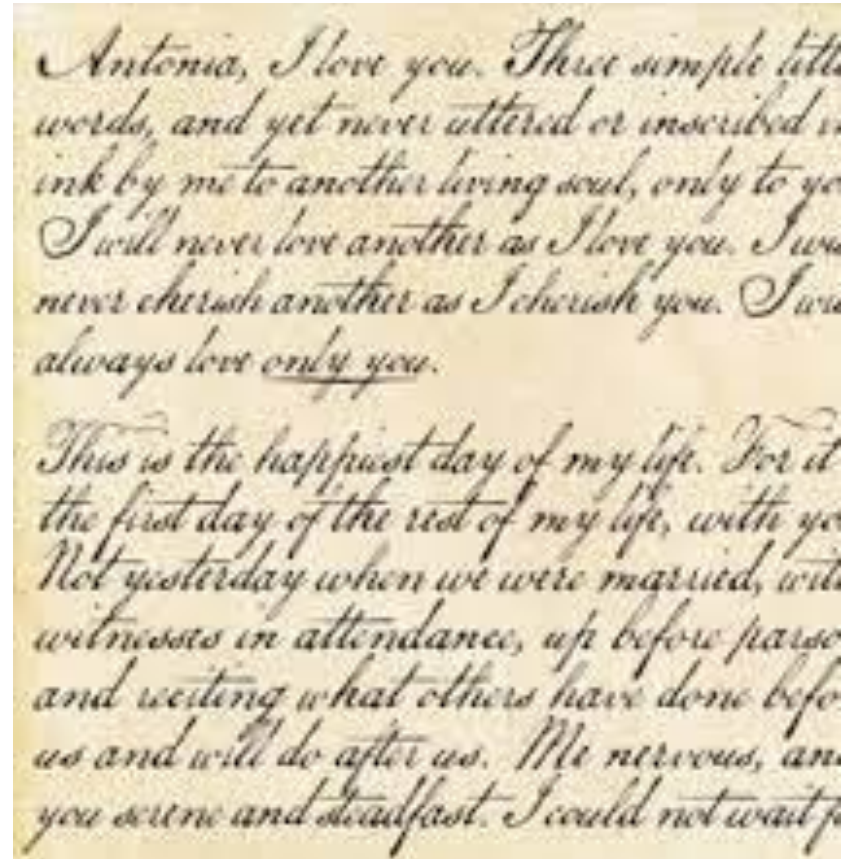 Antonia, I love you. Three simple littl
words, and yet never uttered or inscribed i
ink by me to another living soul, only to yo
I will never love another as I love you. I wi
never cherish another as I cherish you. I wi
always love only you.
This is the happiest day of my life. For it
the first day of the rest of my life, with yo
Not yesterday when we were married, wit
witnesses in attendance, up before parso
and reciting what others have done befo
us and will do after us. Me nervous, an
you serene and steadfast. I could not wait f